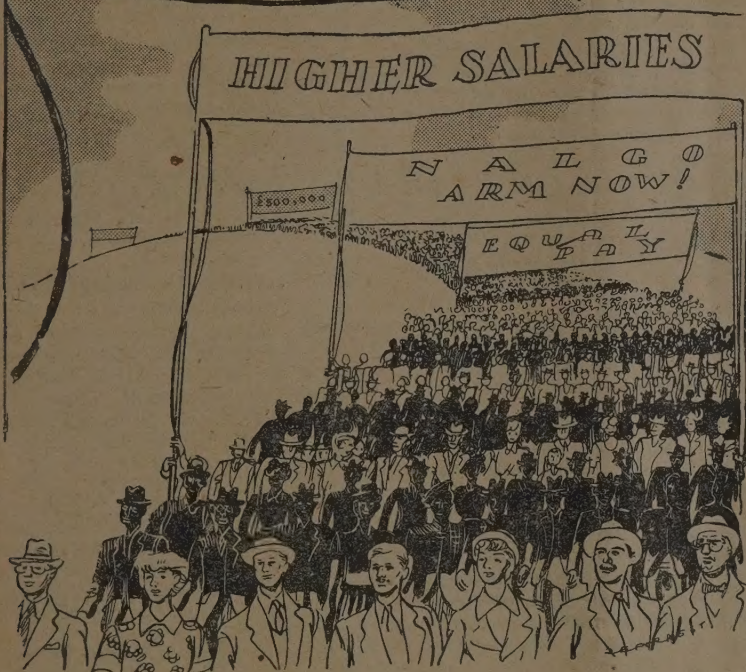 HIGHER SALARIES
NALGO
ARM NOW!
£500,000
EQUAL
PAY